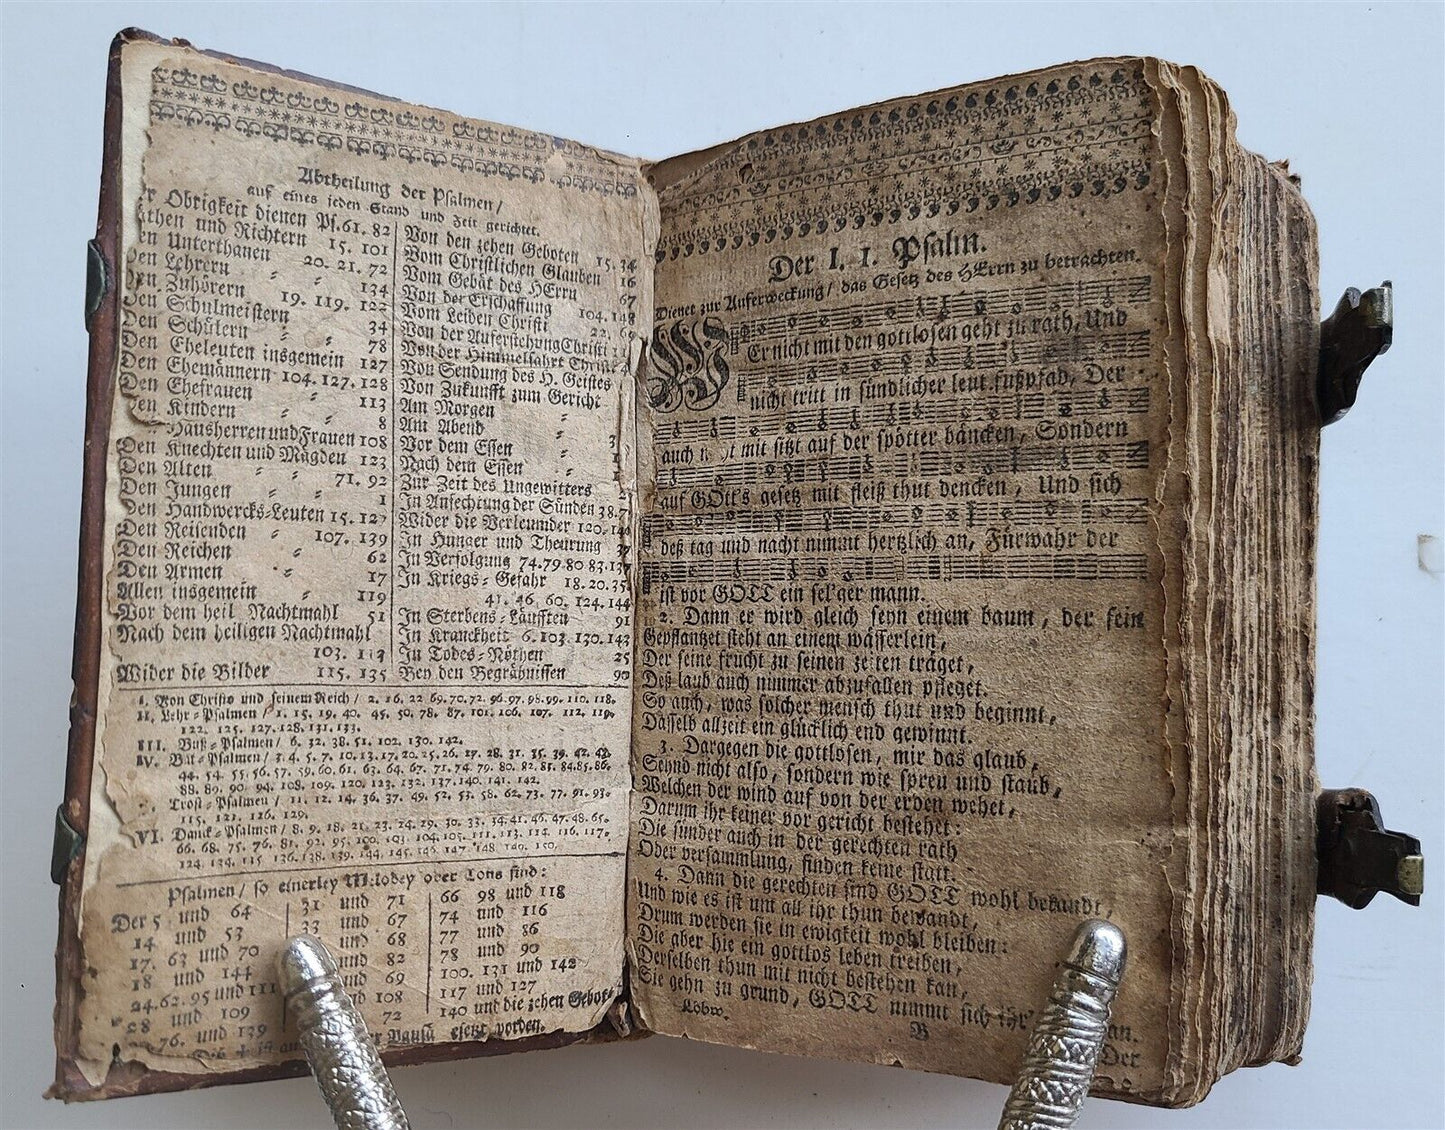 Abtheilung der Psalmen/
auf eines jeden Stand und Zeit gerichtet.
Obrigkeit dienen Ps. 61. 82
und Richtern 15. 101
Unterthanen 20. 21. 72
Den Lehrern 134
Den Zuhörern 19. 119. 122
Den Schulmeistern 34
Den Schülern 78
Den Eheleuten insgemein 127
Den Ehemännern 104. 127. 128
Den Ehefrauen 113
Den Kindern 8
Hausherren und Frauen 108
Den Knechten und Mägden 123
Den Alten 71. 92
Den Jungen 1
Den Handwercks-Leuten 15. 127
Den Reisenden 107. 139
Den Reichen 62
Den Armen 17
Allen insgemein 119
Vor dem heil Nachtmahl 51
Nach dem heiligen Nachtmahl
103.
Wider die Bilder 115. 135
Von den zehen Geboten 15. 34
Vom Christlichen Glauben 16
Vom Gebät des HErrn 67
Von der Erschaffung 104. 148
Vom Leiden Christi 22.
Von der Auferstehung Christi
Von der Himmelfahrt
Von Sendung des H. Geistes
Von Zukunfft zum Gericht
Am Morgen
Am Abend
Vor dem Essen
Nach dem Essen
Zur Zeit des Ungewitters
In Anfechtung der Sünden 38.
Wider die Verleumder 120. 140
In Hunger und Theurung 37
In Verfolgung 74. 79. 80 83. 137
In Kriegs-Gefahr 18. 20. 35
41. 46. 60. 124. 144
In Sterbens-Läufften 91
In Kranckheit 6. 103. 130. 143
In Todes-Nöthen 25
Bey den Begräbnissen 90
I. Von Christo und seinem Reich / 2. 16. 22 69. 70. 72. 96. 97. 98. 99. 110. 118.
II. Lehr-Psalmen / 1. 15. 19. 40. 45. 50. 78. 87. 101. 106. 107. 112. 119.
122. 125. 127. 128. 131. 133.
III. Buß-Psalmen / 6. 32. 38. 51. 102. 130. 142.
IV. Bät-Psalmen / 3. 4. 5. 7. 10. 13. 17. 20. 25. 26. 27. 28. 31. 35. 39. 42. 43.
44. 54. 55. 56. 57. 59. 60. 61. 63. 64. 67. 71. 74. 79. 80. 82. 83. 84. 85. 86.
88. 89. 90. 94. 108. 109. 120. 123. 132. 137. 140. 141. 142.
Trost-Psalmen / 11. 12. 14. 36. 37. 49. 52. 53. 58. 62. 73. 77. 91. 93.
115. 121. 126. 129.
VI. Danck-Psalmen / 8. 9. 18. 21. 23. 24. 29. 30. 33. 34. 41. 46. 47. 48. 65.
66. 68. 75. 76. 81. 92. 95. 100. 103. 104. 105. 111. 113. 114. 116. 117.
124. 134. 135 136. 138. 139. 144. 145. 146. 147. 148. 149. 150.
Psalmen / so einerley Melodey oder Tons sind:
Der 5 und 64
14 und 53
17. 63 und 70
18 und 144
24. 62. 95 und 111
28 und 109
76. und 139
31 und 71
33 und 67
und 68
und 82
69
108
72
66 98 und 118
74 und 116
77 und 86
78 und 90
100. 131 und 142
117 und 127
140 und die zehen Gebot
Der I. 1. Psalm.
Dienet zur Auferweckung / das Gesetz des HErrn zu betrachten.
WEr nicht mit den gottlosen geht zu rath, Und
nicht tritt in sündlicher leut fußpfad, Der
auch mit sitzt auf der spötter bäncken, Sondern
auf GOtt's gesetz mit fleiß thut dencken, Und sich
deß tag und nacht nimmt hertzlich an, Fürwahr der
ist vor GOTT ein sel'ger mann.
2. Dann er wird gleich seyn einem baum, der fein
Gepflantzet steht an einem wässerlein,
Der seine frucht zu seinen zeiten träget,
Deß laub auch nimmer abzufallen pfleget.
So auch, was solcher mensch thut und beginnt,
Dasselb allzeit ein glücklich end gewinnt.
3. Dargegen die gottlosen, mir das glaub,
Seynd nicht also, sondern wie spreu und staub,
Welchen der wind auf von der erden wehet,
Darum ihr keiner vor gericht bestehet:
Die sünder auch in der gerechten rath
Oder versammlung, finden keine statt.
4. Dann die gerechten sind GOTT wohl bekandt,
Und wie es ist um all ihr thun bewandt,
Drum werden sie in ewigkeit wohl bleiben:
Die aber hie ein gottlos leben treiben,
Derselben thun mit nicht bestehen kan,
Sie gehn zu grund, GOTT nimmt sich ihr an.
Lobw. B Der